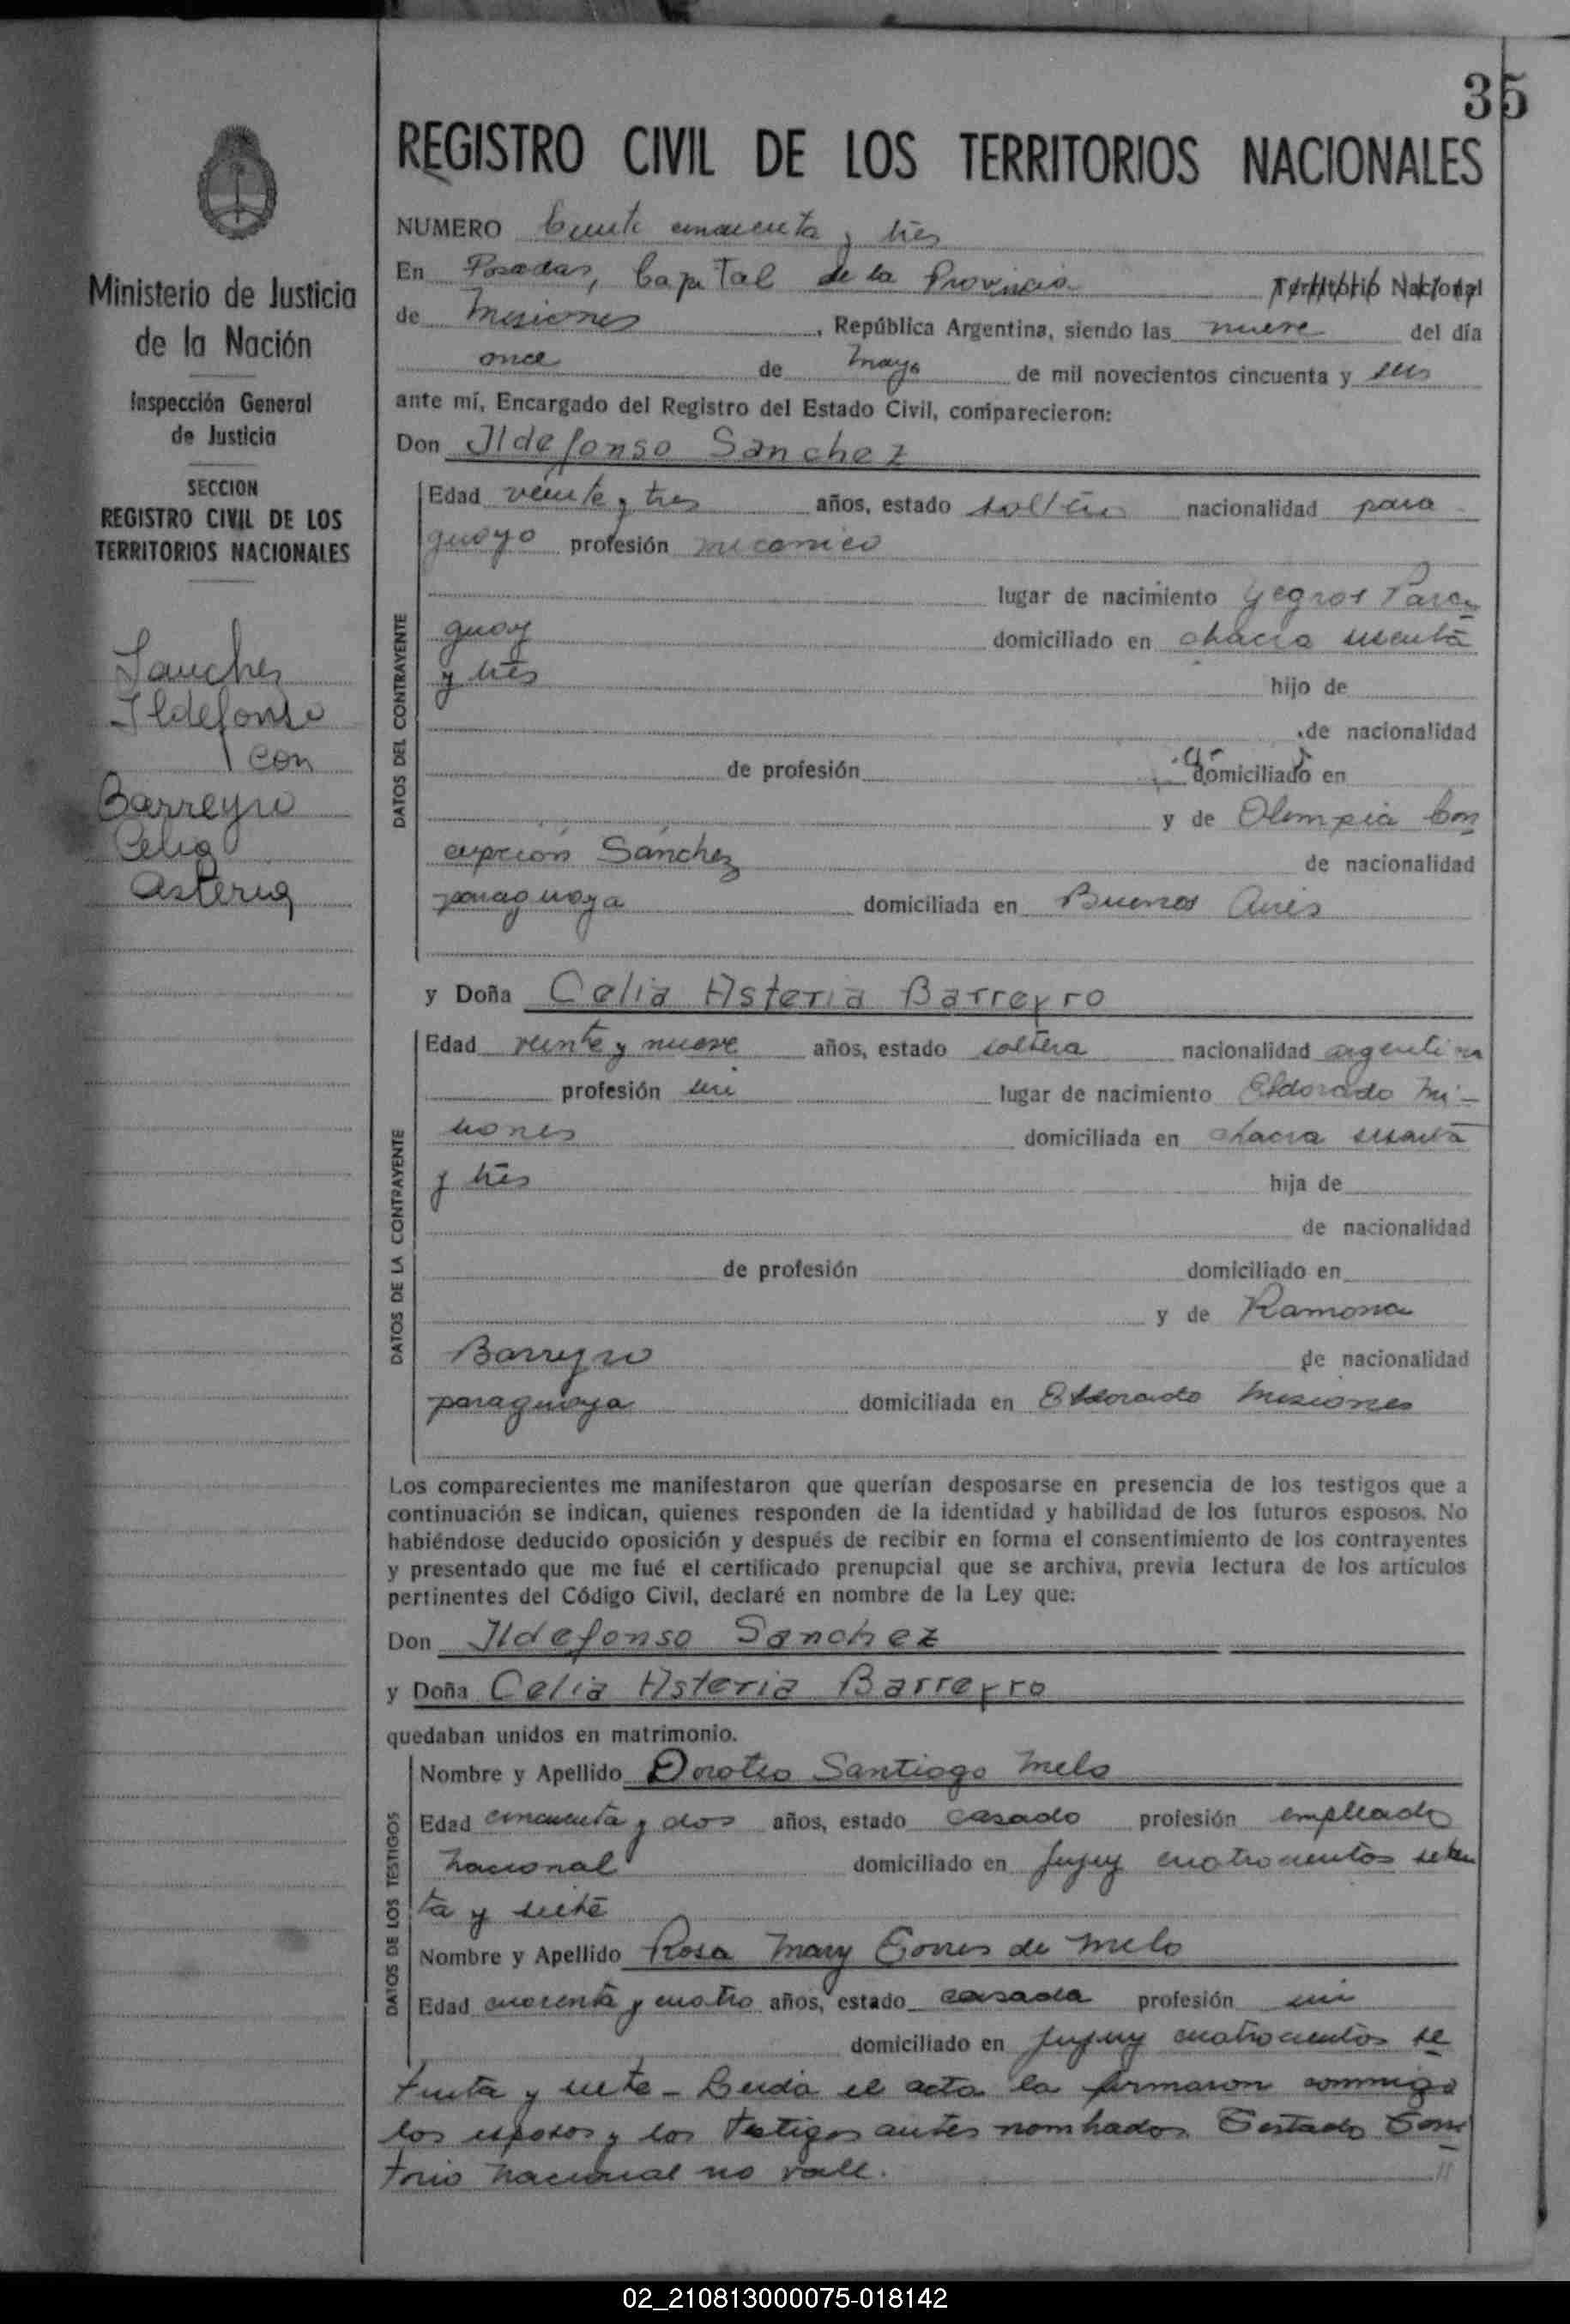 35
REGISTRO CIVIL DE LOS TERRITORIOS NACIONALES
Ministerio de Justicia
de la Nación
Inspección General
de Justicia
SECCION
REGISTRO CIVIL DE LOS
TERRITORIOS NACIONALES
Sanchez
Ildefonso
con
Barreyro
Celia
Asteria
NUMERO Ciento cincuenta y tres
En Posadas, Capital de la Provincia Territorio Nacional
de Misiones, República Argentina, siendo las nueve del día
once de mayo de mil novecientos cincuenta y seis
ante mí, Encargado del Registro del Estado Civil, comparecieron:
Don Ildefonso Sanchez
DATOS DEL CONTRAYENTE
Edad veinte y tres años, estado soltero nacionalidad para
guayo profesión mecanico
lugar de nacimiento Yegros Para
guay domiciliado en chacra sesenta
y tres hijo de
de nacionalidad
de profesión domiciliado en
y de Olimpia Con
cepción Sánchez de nacionalidad
paraguaya domiciliada en Buenos Aires
y Doña Celia Asteria Barreyro
DATOS DE LA CONTRAYENTE
Edad veinte y nueve años, estado soltera nacionalidad argentina
profesión sin lugar de nacimiento Eldorado Mi-
siones domiciliada en chacra sesenta
y tres hija de
de nacionalidad
de profesión domiciliado en
y de Ramona
Barreyro de nacionalidad
paraguaya domiciliada en Eldorado Misiones
Los comparecientes me manifestaron que querían desposarse en presencia de los testigos que a
continuación se indican, quienes responden de la identidad y habilidad de los futuros esposos. No
habiéndose deducido oposición y después de recibir en forma el consentimiento de los contrayentes
y presentado que me fué el certificado prenupcial que se archiva, previa lectura de los artículos
pertinentes del Código Civil, declaré en nombre de la Ley que:
Don Ildefonso Sanchez
y Doña Celia Asteria Barreyro
quedaban unidos en matrimonio.
DATOS DE LOS TESTIGOS
Nombre y Apellido Doroteo Santiago Melo
Edad cincuenta y dos años, estado casado profesión empleado
nacional domiciliado en Jujuy cuatrocientos seten
ta y siete
Nombre y Apellido Rosa Mary Torres de Melo
Edad cuarenta y cuatro años, estado casada profesión sin
domiciliado en Jujuy cuatrocientos se
tenta y siete - Leida el acta la firmaron conmigo
los esposos y los testigos antes nombrados Testado Terri
torio nacional no vale.
02_210813000075-018142